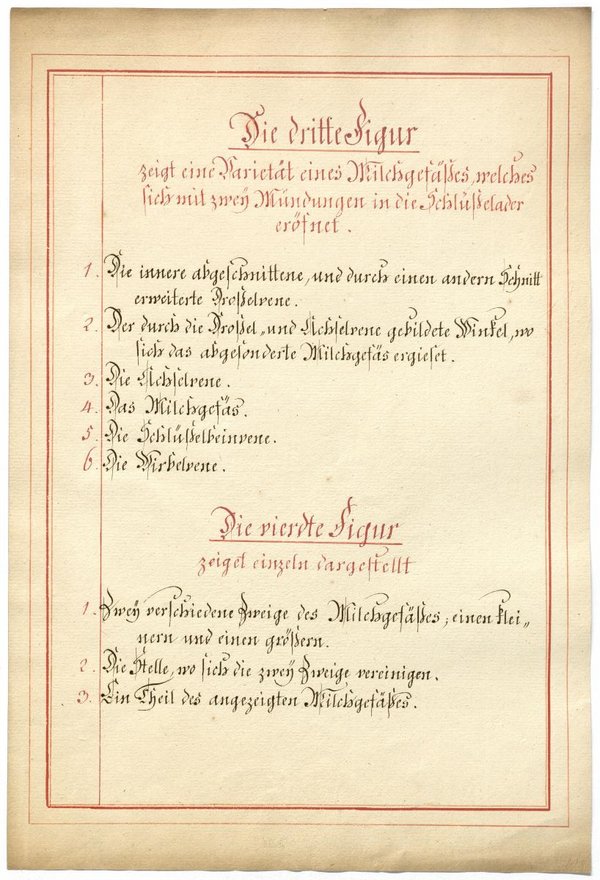 Die dritte Figur
zeigt eine Varietät eines Milchgefäßes, welches
sich mit zwey Mündungen in die Schlüßelader
eröfnet.
1. Die innere abgeschnittene, und durch einen andern Schnitt
erweiterte Droßelvene.
2. Der durch die Droßel- und Achselvene gebildete Winkel, wo
sich das abgesonderte Milchgefäs ergieset.
3. Die Achselvene.
4. Das Milchgefäs.
5. Die Schlüßelbeinvene.
6. Die Wirbelvene.
Die vierdte Figur
zeiget einzeln dargestellt
1. Zwey verschiedene Zweige des Milchgefäßes; einen klei-
nern und einen größern.
2. Die Stelle, wo sich die zwey Zweige vereinigen.
3. Ein Theil des angezeigten Milchgefäßes.